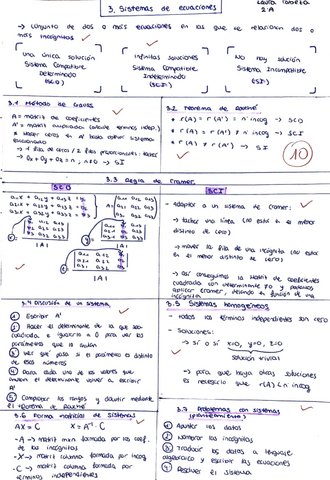 3. Sistemas de ecuaciones
2ºA
→ conjunto de dos o más ecuaciones en las que se relacionan dos o
más incógnitas
una única solución
Sistema Compatible
Determinado
(SCD)
infinitas soluciones
Sistema Compatible
Indeterminado
(SCI)
No hay solución
Sistema Incompatible
(SI)
3.1 Método de Gauss
A = matriz de coeficientes
A' = matriz ampliada
* Hacer ceros
escalonado
3.2 Teorema de Rouché
* r(A) = r(A') = nº incog → SCD
* r(A) = r(A') ≠ nº incog → SCI
* r(A) ≠ r(A') → SI
10
3.3 Regla de Cramer
SCD
SCI
→ adaptar a un sistema de Cramer:
→ tachar una línea (no esté en el menor
distinto de cero)
→ mover la fila de una incógnita (no está
en el menor distinto de cero)
→ así conseguimos la matriz de coeficientes
cuadrada con determinante ≠0 y podemos
aplicar Cramer, en función de una
incógnita
|A|
|A|
3.4 Discusión de un sistema
① Escribir A'
② Hacer el determinante de la que sea
cuadrada e igualarlo a 0 para ver los
parámetros que la anulan
③ Ver qué pasa si el parámetro es distinto
de esos números
④ Para cada uno de los valores que
anulan el determinante volver a escribir
A'
⑤ Comparar los rangos y discutir mediante
el teorema de Rouché
3.5 Sistemas homogéneos
→ todos los términos independientes son cero
→ Soluciones:
→ x=0, y=0, z=0
solución trivial
→ para que haya otras soluciones
es necesario que r(A) < n incog
3.6 Forma matricial de sistemas
AX = C X = A⁻¹ · C
→ A → matriz formada por los coef.
de las incógnitas
→ X → matriz columna formada por incog
→ C → matriz columna formada por
términos independientes
3.7 Problemas con sistemas
(planteamiento)
① Apuntar los datos
② Nombrar las incógnitas
③ Traducir los datos a lenguaje
algebraico y escribir las ecuaciones
④ Resolver el sistema